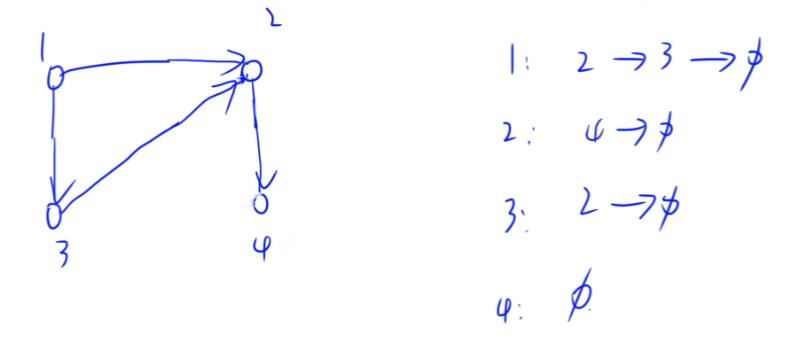 1
2
3
4
1: 2 → 3 → ∅
2: 4 → ∅
3: 2 → ∅
4: ∅